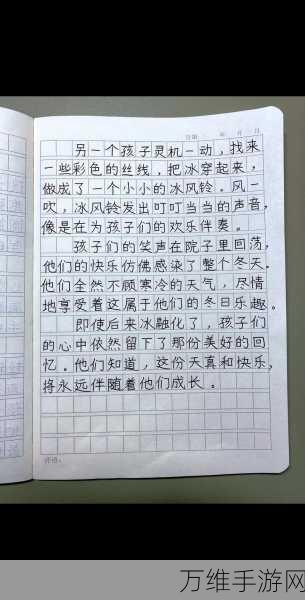 日期： 年 月 日
另一个孩子灵机一动，找来
一些彩色的丝线，把冰穿起来，
做成了一个小小的冰风铃。风一
吹，冰风铃发出叮叮当当的声音，
像是在为孩子们的欢乐伴奏。
孩子们的笑声在院子里回荡，
他们的快乐仿佛感染了整个冬天。
他们全然不顾寒冷的天气，尽情
地享受着这属于他们的冬日乐趣。
即使后来冰融化了，孩子们
的心中依然留下了那份美好的回
忆。他们知道，这份天真和快乐，
将永远伴随着他们成长。
评语：
万维手游网